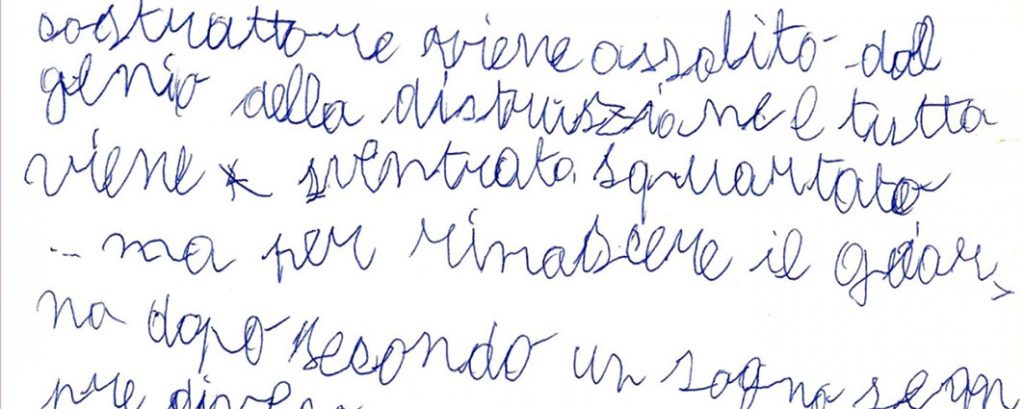 sostrattore viene assalito dal
genio della distruszione e tutta
viene sventrata squartato
... ma per rinascere il gior
no dopo secondo un sogno sem
pre diver